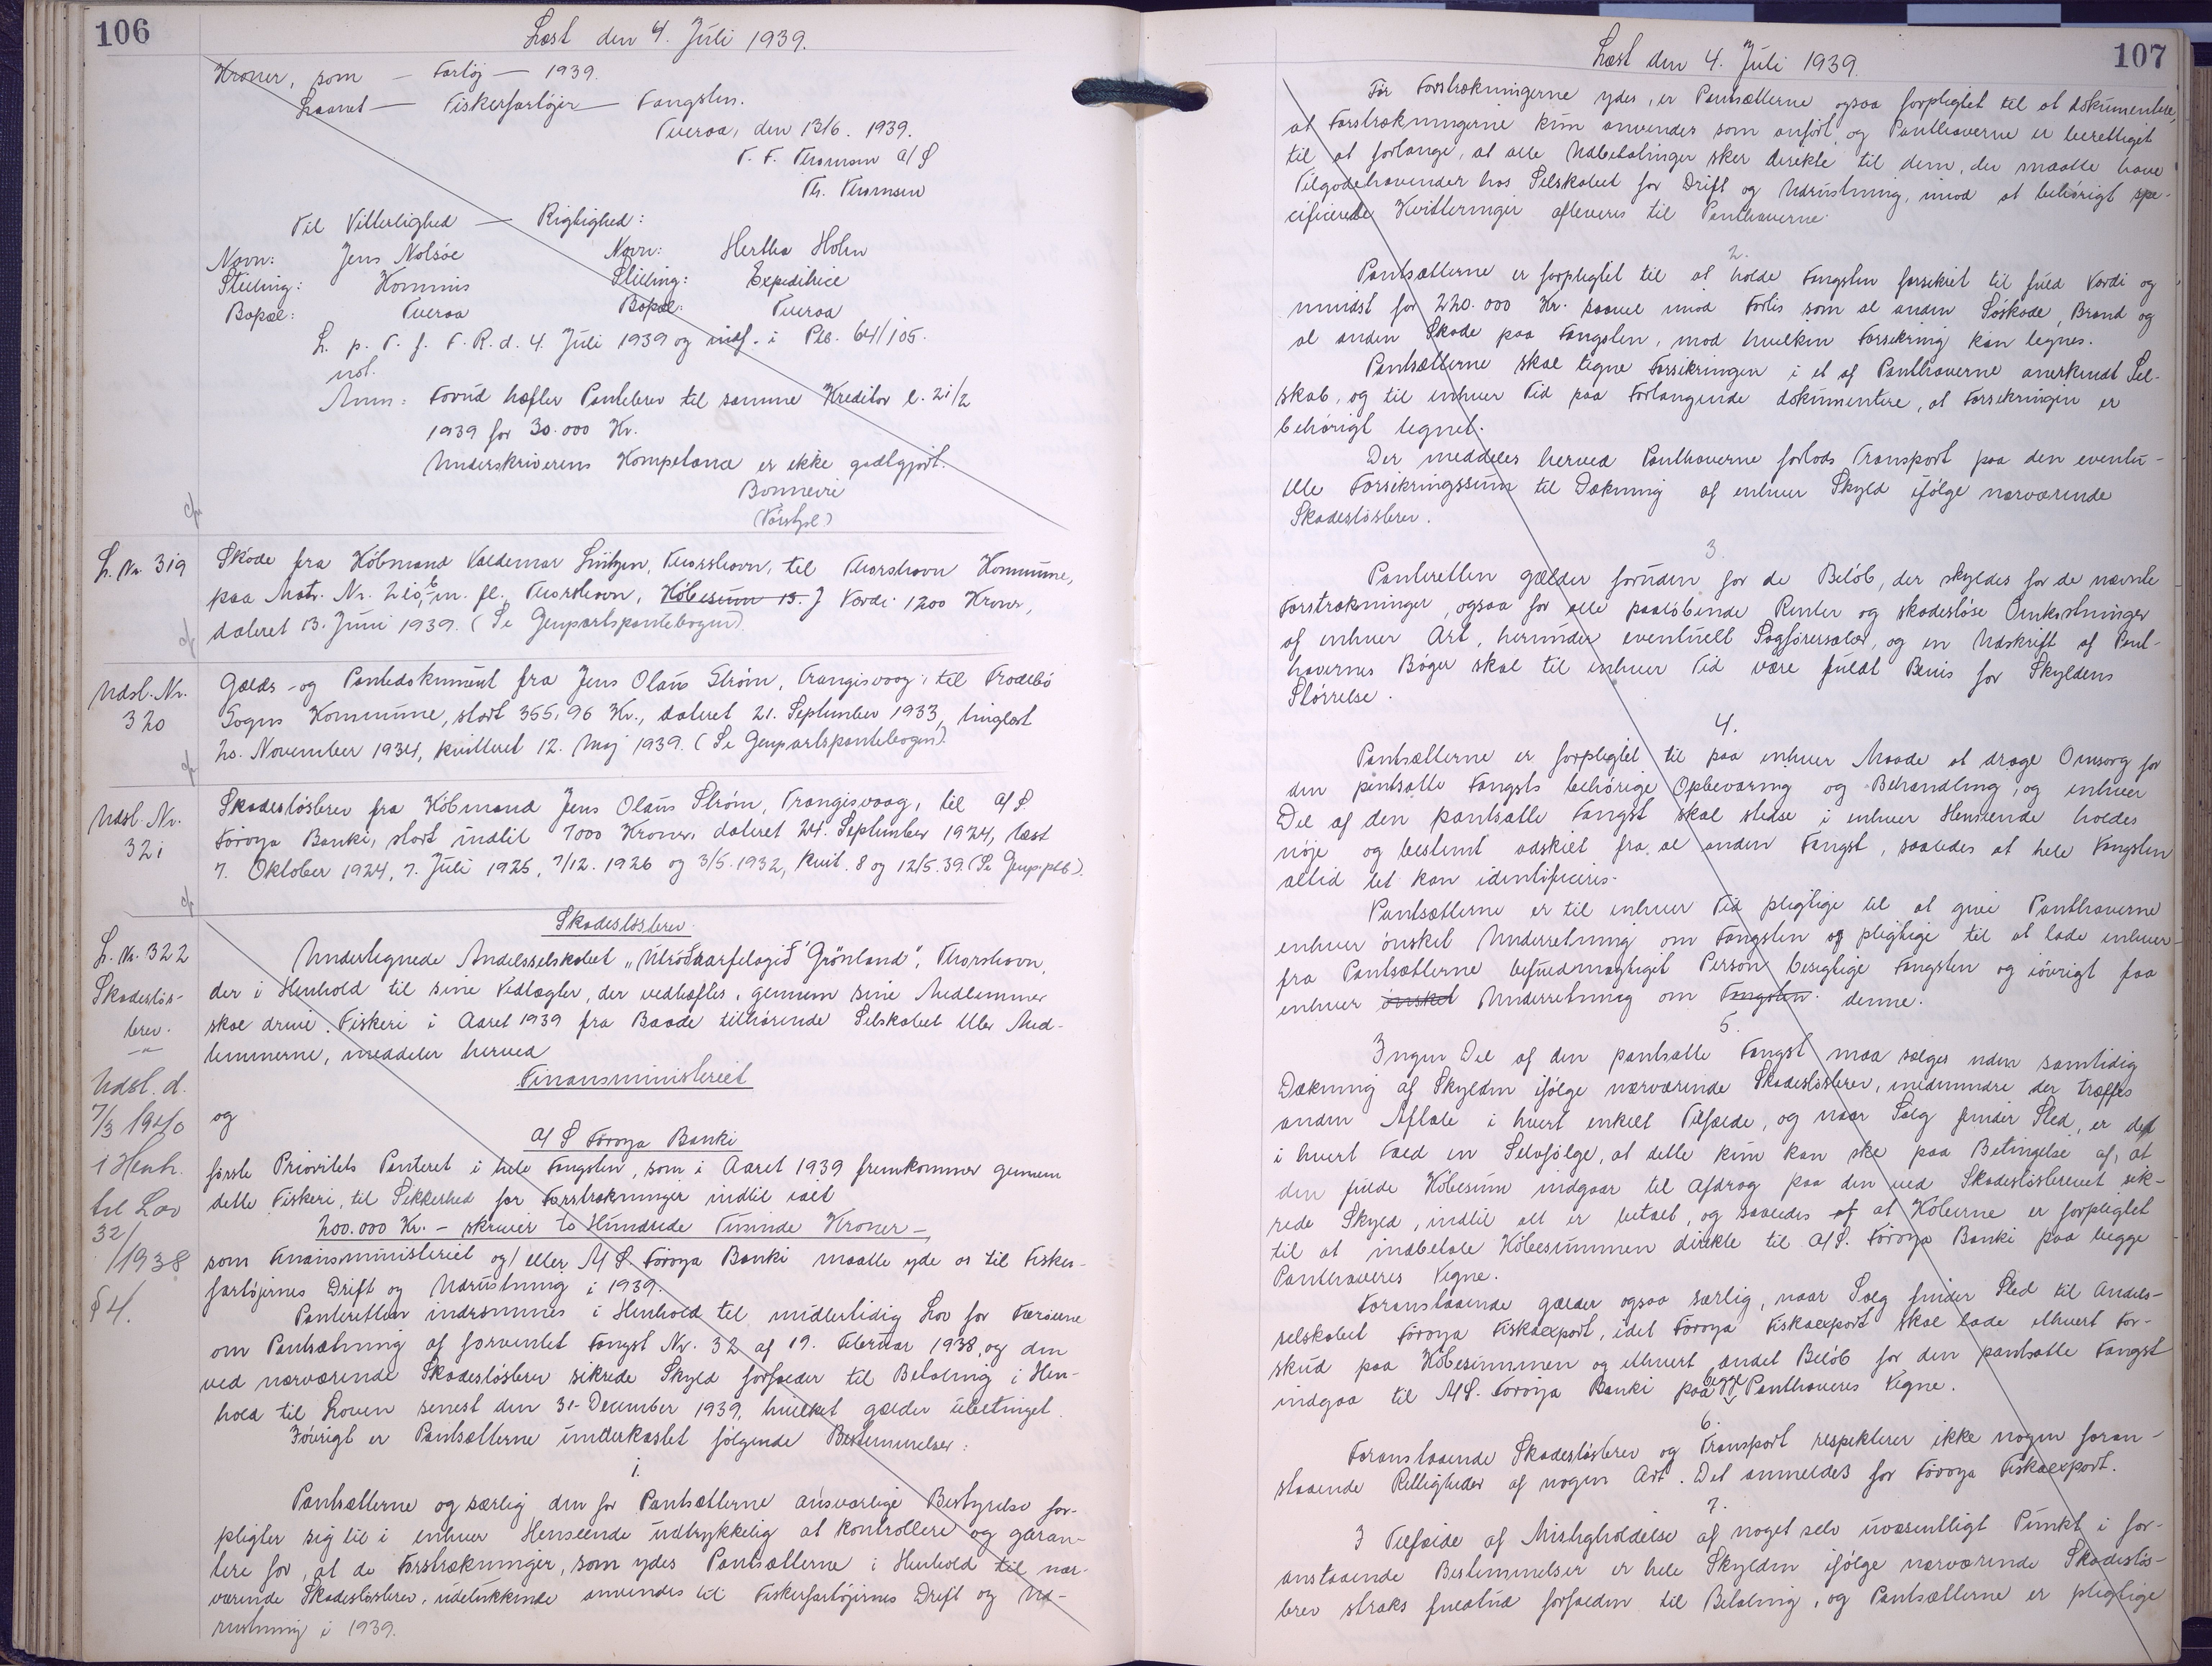 106
Læst den 4. Juli 1939.
Kroner, som — Fartøj — 1939.
Laanet — Fiskerfartøjer — Fangsten.
Tveraa, den 13/6. 1939.
T. F. Thomsen A/S
Th. Thomsen
Til Vitterlighed — Rigtighed:
Navn: Jens Nolsøe Navn: Hertha Holm
Stilling: Kommis Stilling: Expeditrice
Bopæl: Tveraa Bopæl: Tveraa
L. p. T. f. F. R. d. 4. Juli 1939 og indf. i Plb. 64/105.
Anm: Forud hæfter Pantebrev til samme Kreditor l. 21/2
1939 for 30.000 Kr.
Underskriverens Kompetance er ikke godtgjort.
Bonnevie
L. Nr. 319
Skøde fra Købmand Valdemar Lützen, Thorshavn, til Thorshavn Kommune,
paa Matr. Nr. 210, b m. fl., Thorshavn, Købesum 15. J Værdi 1200 Kroner,
dateret 13. Juni 1939. (Se Genpartspantebogen)
Udsl. Nr.
320
Gælds- og Pantedokument fra Jens Olaus Strøm, Trangisvaag, til Frodebø
Sogns Kommune, stort 355,96 Kr., dateret 21. September 1933, tinglæst
20. November 1934, kvitteret 12. Maj 1939. (Se Genpartspantebogen).
Udsl. Nr.
321
Skadesløsbrev fra Købmand Jens Olaus Strøm, Trangisvaag, til A/S
Føroya Banki, stort indtil 7000 Kroner, dateret 24. September 1924, læst
7. Oktober 1924, 7. Juli 1925, 7/12. 1926 og 3/5. 1932, kvit. 8 og 12/5. 39. (Se Genp.plb).
Skadesløsbrev
L. Nr. 322
Skadesløs-
brev.
Udsl. d.
7/3 1940
i Henh.
til Lov
32/
/1938
§4.
Undertegnede Andelsselskabet "Útróðrarfelagið Grönland", Thorshavn,
der i Henhold til sine Vedtægter, der vedhæftes, gennem sine Medlemmer
skal drive Fiskeri i Aaret 1939 fra Baade tilhørende Selskabet eller Med-
lemmerne, meddeler herved
Finansministeriet
og
A/S Føroya Banki
første Prioritets Panteret i hele Fangsten, som i Aaret 1939 fremkommer gennem
dette Fiskeri, til Sikkerhed for Forstrækninger indtil ialt
200.000 Kr. – skriver to Hundrede Tusinde Kroner –,
som Finansministeriet og/eller A/S Føroya Banki maatte yde os til Fisker-
fartøjernes Drift og Udrustning i 1939.
Panteretten indrømmes i Henhold til midlertidig Lov for Færøerne
om Pantsætning af forventet Fangst Nr. 32 af 19. Februar 1938, og den
ved nærværende Skadesløsbrev sikrede Skyld forfalder til Betaling i Hen-
hold til Loven senest den 31. December 1939, hvilket gælder ubetinget.
Iøvrigt er Pantsætterne underkastet følgende Bestemmelser:
1.
Pantsætterne og særlig den for Pantsætterne ansvarlige Bestyrelse for-
pligter sig til i enhver Henseende udtrykkelig at kontrollere og garan-
tere for, at de Forstrækninger, som ydes Pantsætterne i Henhold til nær-
værende Skadesløsbrev, udelukkende anvendes til Fiskerfartøjernes Drift og Ud-
rustning i 1939.
107
Læst den 4. Juli 1939.
Før Forstrækningerne ydes, er Pantsætterne ogsaa forpligtet til at dokumentere,
at Forstrækningerne kun anvendes som anført, og Panthaverne er berettiget
til at forlange, at alle Udbetalinger sker direkte til dem, der maatte have
Tilgodehavender hos Selskabet for Drift og Udrustning, imod at behørigt spe-
cificerede Kvitteringer afleveres til Panthaverne.
2.
Pantsætterne er forpligtet til at holde Fangsten forsikret til fuld Værdi og
mindst for 220.000 Kr. saavel imod Forlis som al anden Søskade, Brand og
al anden Skade paa Fangsten, mod hvilken Forsikring kan tegnes.
Pantsætterne skal tegne Forsikringen i et af Panthaverne anerkendt Sel-
skab, og til enhver Tid paa Forlangende dokumentere, at Forsikringen er
behørigt tegnet.
Der meddeles herved Panthaverne forlods Transport paa den eventu-
elle Forsikringssum til Dækning af enhver Skyld ifølge nærværende
Skadesløsbrev.
3.
Panteretten gælder foruden for de Beløb, der skyldes for de nævnte
Forstrækninger, ogsaa for alle paaløbende Renter og skadesløse Omkostninger
af enhver Art, herunder eventuelt Sagførersalær, og en Udskrift af Pant-
havernes Bøger skal til enhver Tid være fuldt Bevis for Skyldens
Størrelse.
4.
Pantsætterne er forpligtet til paa enhver Maade at drage Omsorg for
den pantsatte Fangsts behørige Opbevaring og Behandling, og enhver
Del af den pantsatte Fangst skal stedse i enhver Henseende holdes
nøje og bestemt adskilt fra al anden Fangst, saaledes at hele Fangsten
altid let kan identificeres.
Pantsætterne er til enhver Tid pligtige til at give Panthaverne
enhver ønsket Underretning om Fangsten og pligtige til at lade enhver
fra Pantsætterne befuldmægtiget Person besigtige Fangsten og iøvrigt faa
enhver ønsket Underretning om Fangsten. denne.
5.
Ingen Del af den pantsatte Fangst maa sælges uden samtidig
Dækning af Skylden ifølge nærværende Skadesløsbrev, medmindre der træffes
anden Aftale i hvert enkelt Tilfælde, og naar Salg finder Sted, er det
i hvert Fald en Selvfølge, at dette kun kan ske paa Betingelse af, at
den fulde Købesum indgaar til Afdrag paa den ved Skadesløsbrevet sik-
rede Skyld, indtil alt er betalt, og saaledes at at Køberne er forpligtet
til at indbetale Købesummen direkte til A/S. Føroya Banki paa begge
Panthaveres Vegne.
Foranstaaende gælder ogsaa særlig, naar Salg finder Sted til Andels-
selskabet Føroya Fiskaexport, idet Føroya Fiskaexport skal lade ethvert For-
skud paa Købesummen og ethvert andet Beløb for den pantsatte Fangst
indgaa til A/S. Føroya Banki paa begge Panthaveres Vegne.
6.
Foranstaaende Skadesløsbrev og Transport respekterer ikke nogen foran-
staaende Rettigheder af nogen Art. Det anmeldes for Føroya Fiskaexport.
7.
I Tilfælde af Misligholdelse af noget selv uvæsentligt Punkt i for-
anstaaende Bestemmelser er hele Skylden ifølge nærværende Skadesløs-
brev straks fuldtud forfalden til Betaling, og Pantsætterne er pligtige